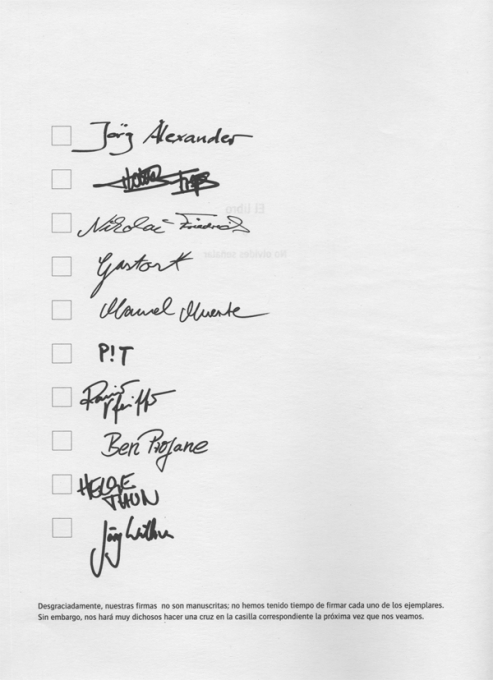 Jörg Alexander
Nikolai Friedrich
Gaston
Manuel Muerte
P!T
Pfeiffer
Ben Profane
HELGE
THUN
Jörg Willer
Desgraciadamente, nuestras firmas no son manuscritas; no hemos tenido tiempo de firmar cada uno de los ejemplares.
Sin embargo, nos hará muy dichosos hacer una cruz en la casilla correspondiente la próxima vez que nos veamos.